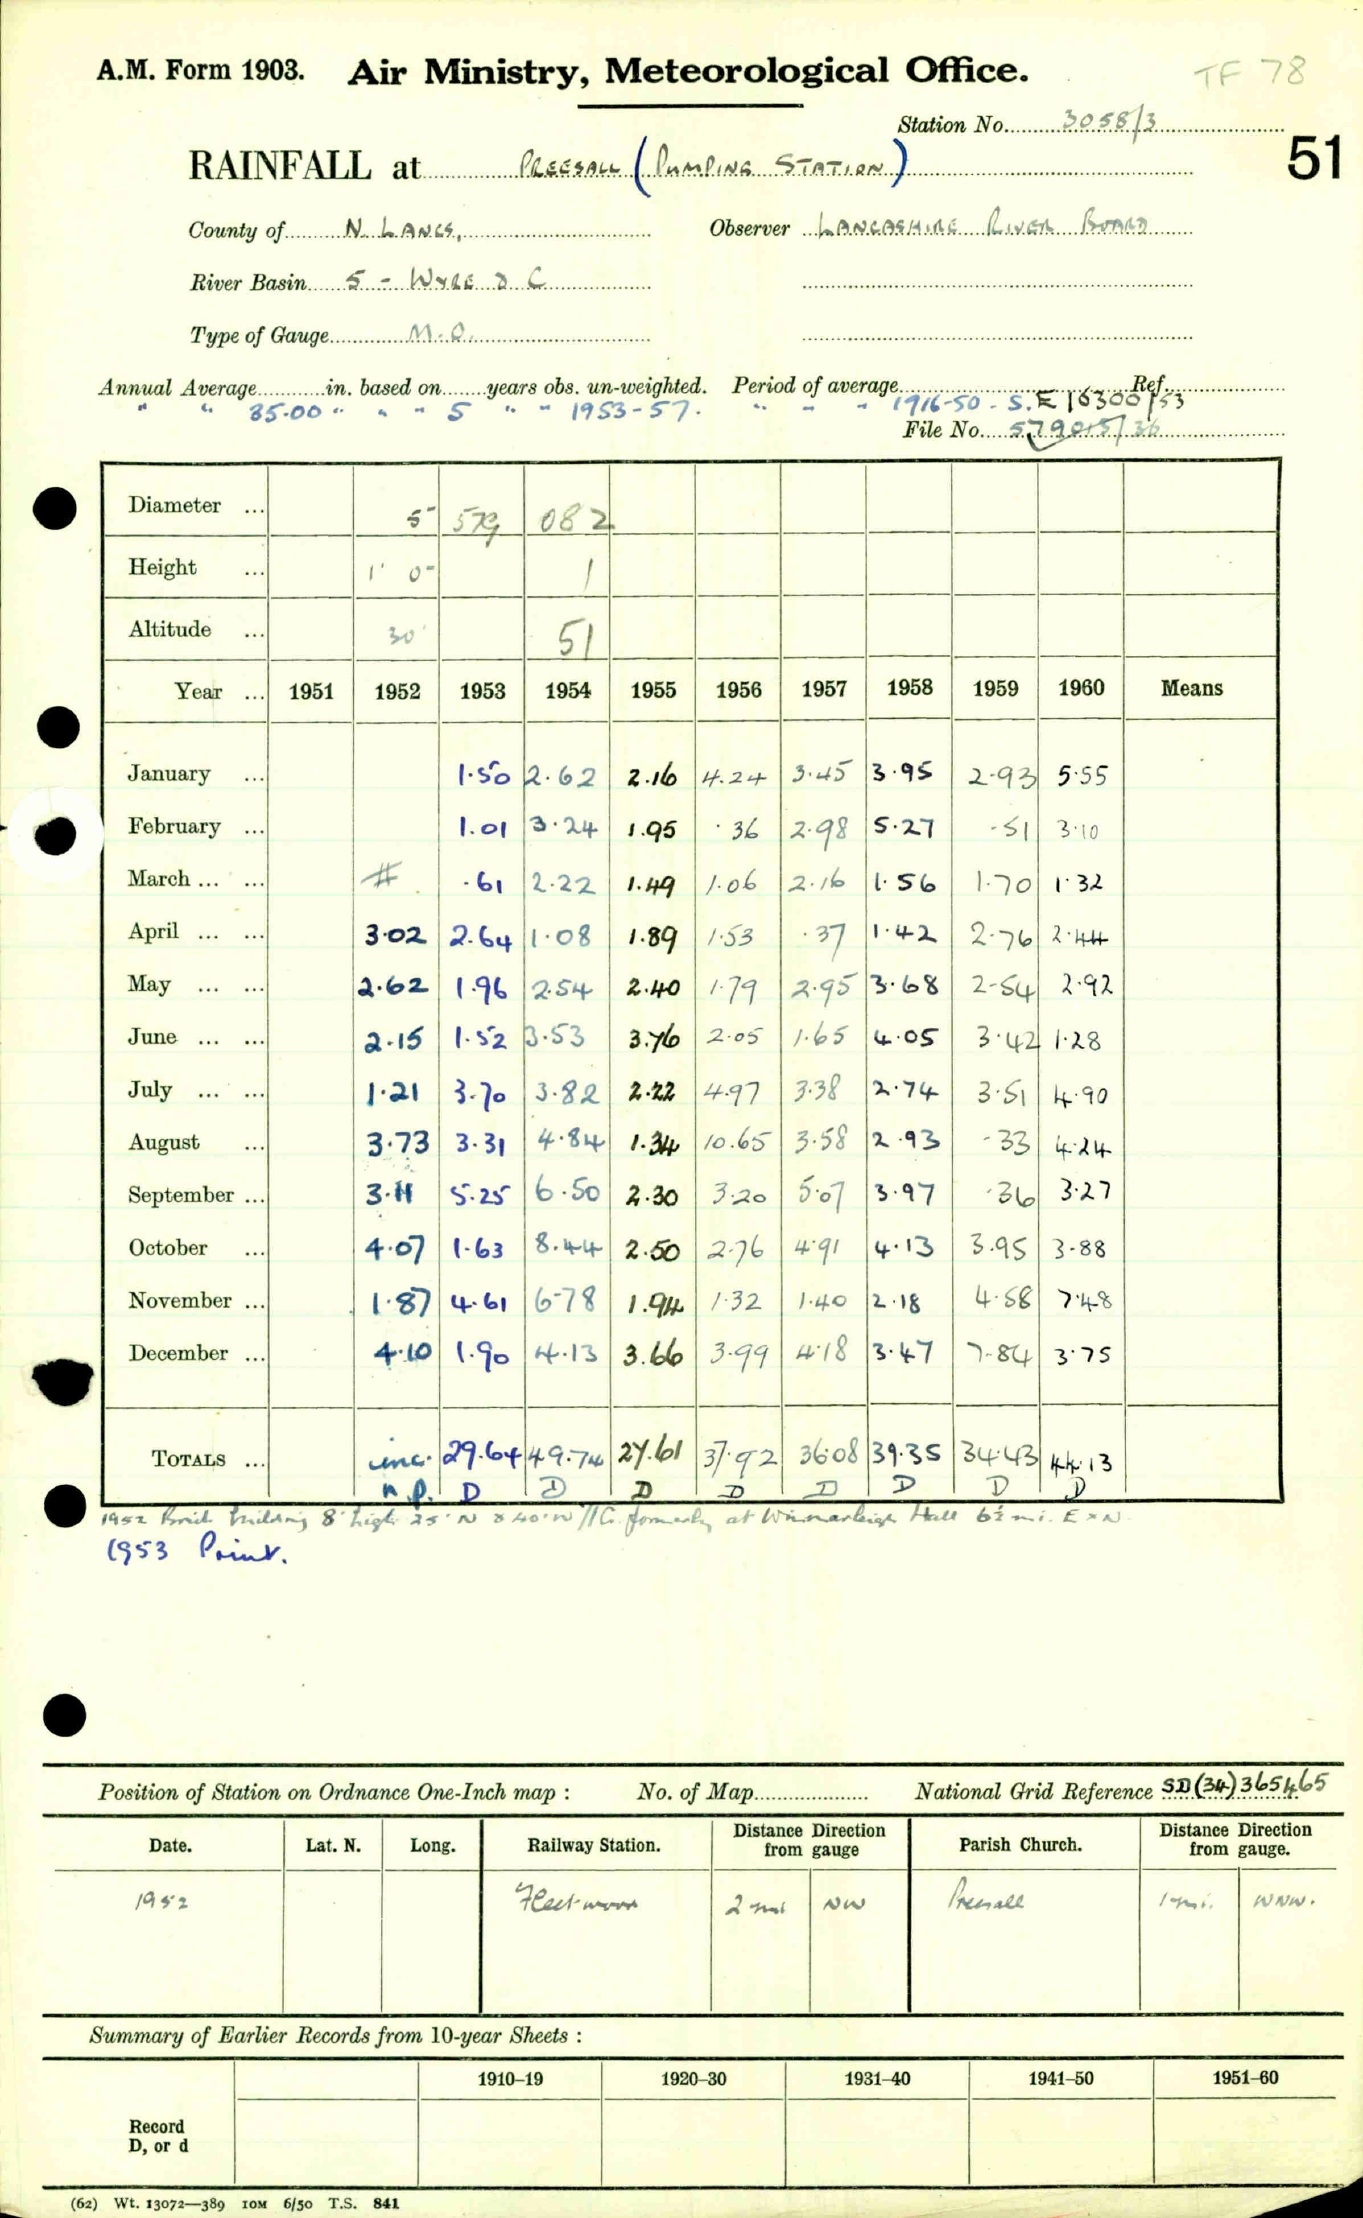 A.M. Form 1903. Air Ministry, Meteorological Office. TF 78
Station No. 3058/3
51
RAINFALL at PREESALL (PUMPING STATION)
County of N. LANCS, Observer LANCASHIRE RIVER BOARD
River Basin 5 - WYRE & C
Type of Gauge M.O.
Annual Average in. based on years obs. un-weighted. Period of average Ref.
" " 35.00 " " " 5 " " 1953-57. " " " 1916-50 - S.E 16300/53
File No. 579015/36
Diameter ... 5" 579 082
Height ... 1' 0" 1
Altitude ... 30' 51
Year ... 1951 1952 1953 1954 1955 1956 1957 1958 1959 1960 Means
January ... 1.50 2.62 2.16 4.24 3.45 3.95 2.93 5.55
February ... 1.01 3.24 1.95 .36 2.98 5.27 .51 3.10
March ... ... # .61 2.22 1.49 1.06 2.16 1.56 1.70 1.32
April ... ... 3.02 2.64 1.08 1.89 1.53 .37 1.42 2.76 2.44
May ... ... 2.62 1.96 2.54 2.40 1.79 2.95 3.68 2.54 2.92
June ... ... 2.15 1.52 3.53 3.76 2.05 1.65 4.05 3.42 1.28
July ... ... 1.21 3.70 3.82 2.22 4.97 3.38 2.74 3.51 4.90
August ... 3.73 3.31 4.84 1.34 10.65 3.58 2.93 .33 4.24
September ... 3.11 5.25 6.50 2.30 3.20 5.07 3.97 .36 3.27
October ... 4.07 1.63 8.44 2.50 2.76 4.91 4.13 3.95 3.88
November ... 1.87 4.61 6.78 1.94 1.32 1.40 2.18 4.58 7.48
December ... 4.10 1.90 4.13 3.66 3.99 4.18 3.47 7.84 3.75
TOTALS ... inc. 29.64 49.74 27.61 37.92 36.08 39.35 34.43 44.13
n.p. D D D D D D D D
1952 Brick building 8' high 25' N & 40' W // G. formerly at Winmarleigh Hall 6½ mi. E × N
1953 Print.
Position of Station on Ordnance One-Inch map : No. of Map National Grid Reference SD (34) 365465
Date. Lat. N. Long. Railway Station. Distance from gauge Direction Parish Church. Distance from gauge. Direction
1952 Fleetwood 2 mi NW Preesall 1 mi. WNW.
Summary of Earlier Records from 10-year Sheets :
1910–19 1920–30 1931–40 1941–50 1951–60
Record
D, or d
(62) Wt. 13072—389 10M 6/50 T.S. 841